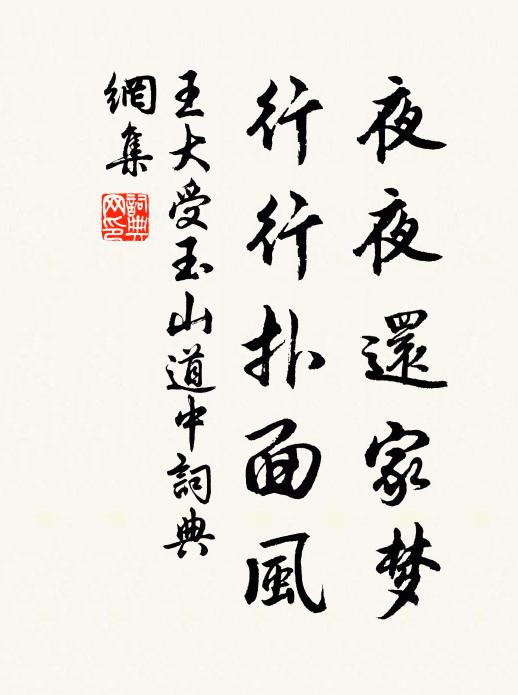 夜夜還家梦
行行扑面風
王大受玉山道中詞典
網集
詞典
网印